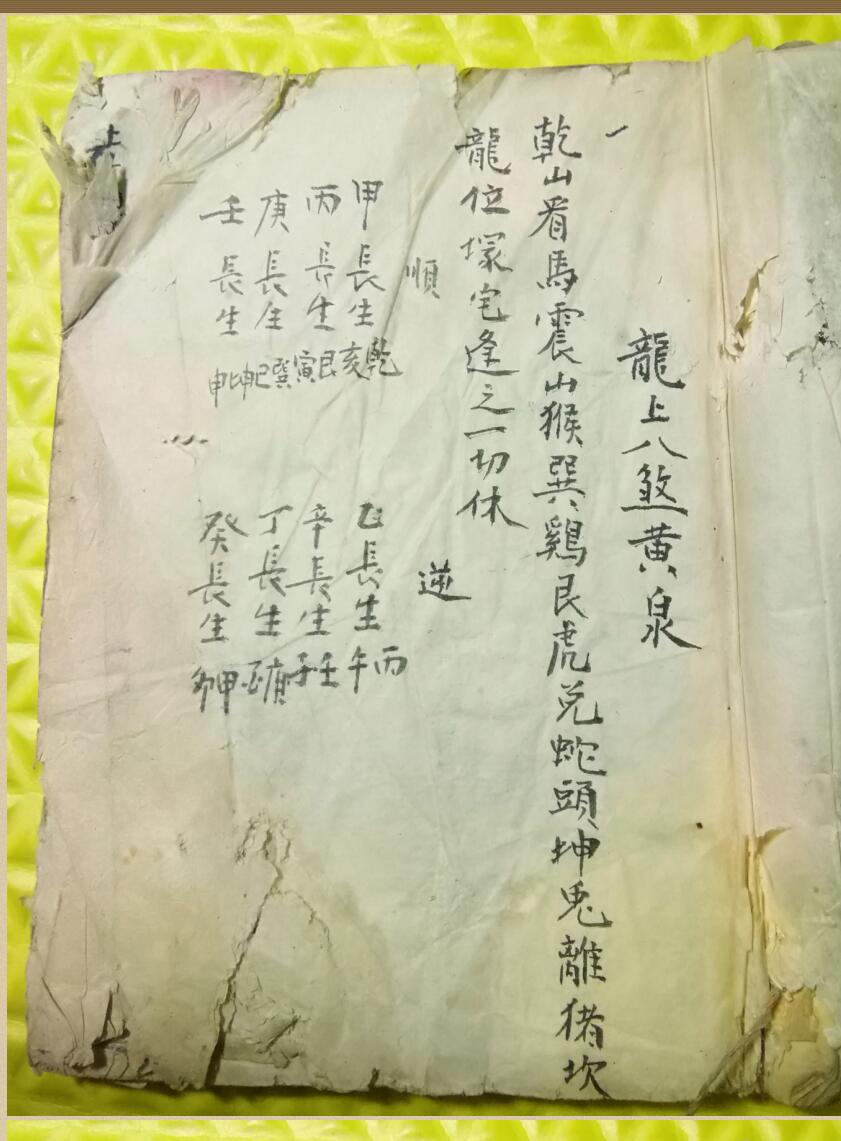 龍上八煞黄泉
乾山看馬震山猴巽鷄艮虎兑蛇頭坤兎離猪坎
龍位塚宅逢之一切休
順
甲長生乾亥
丙長生艮寅
庚長生巽巳
壬長生坤申
逆
乙長生丙午
辛長生壬子
丁長生庚酉
癸長生甲卯